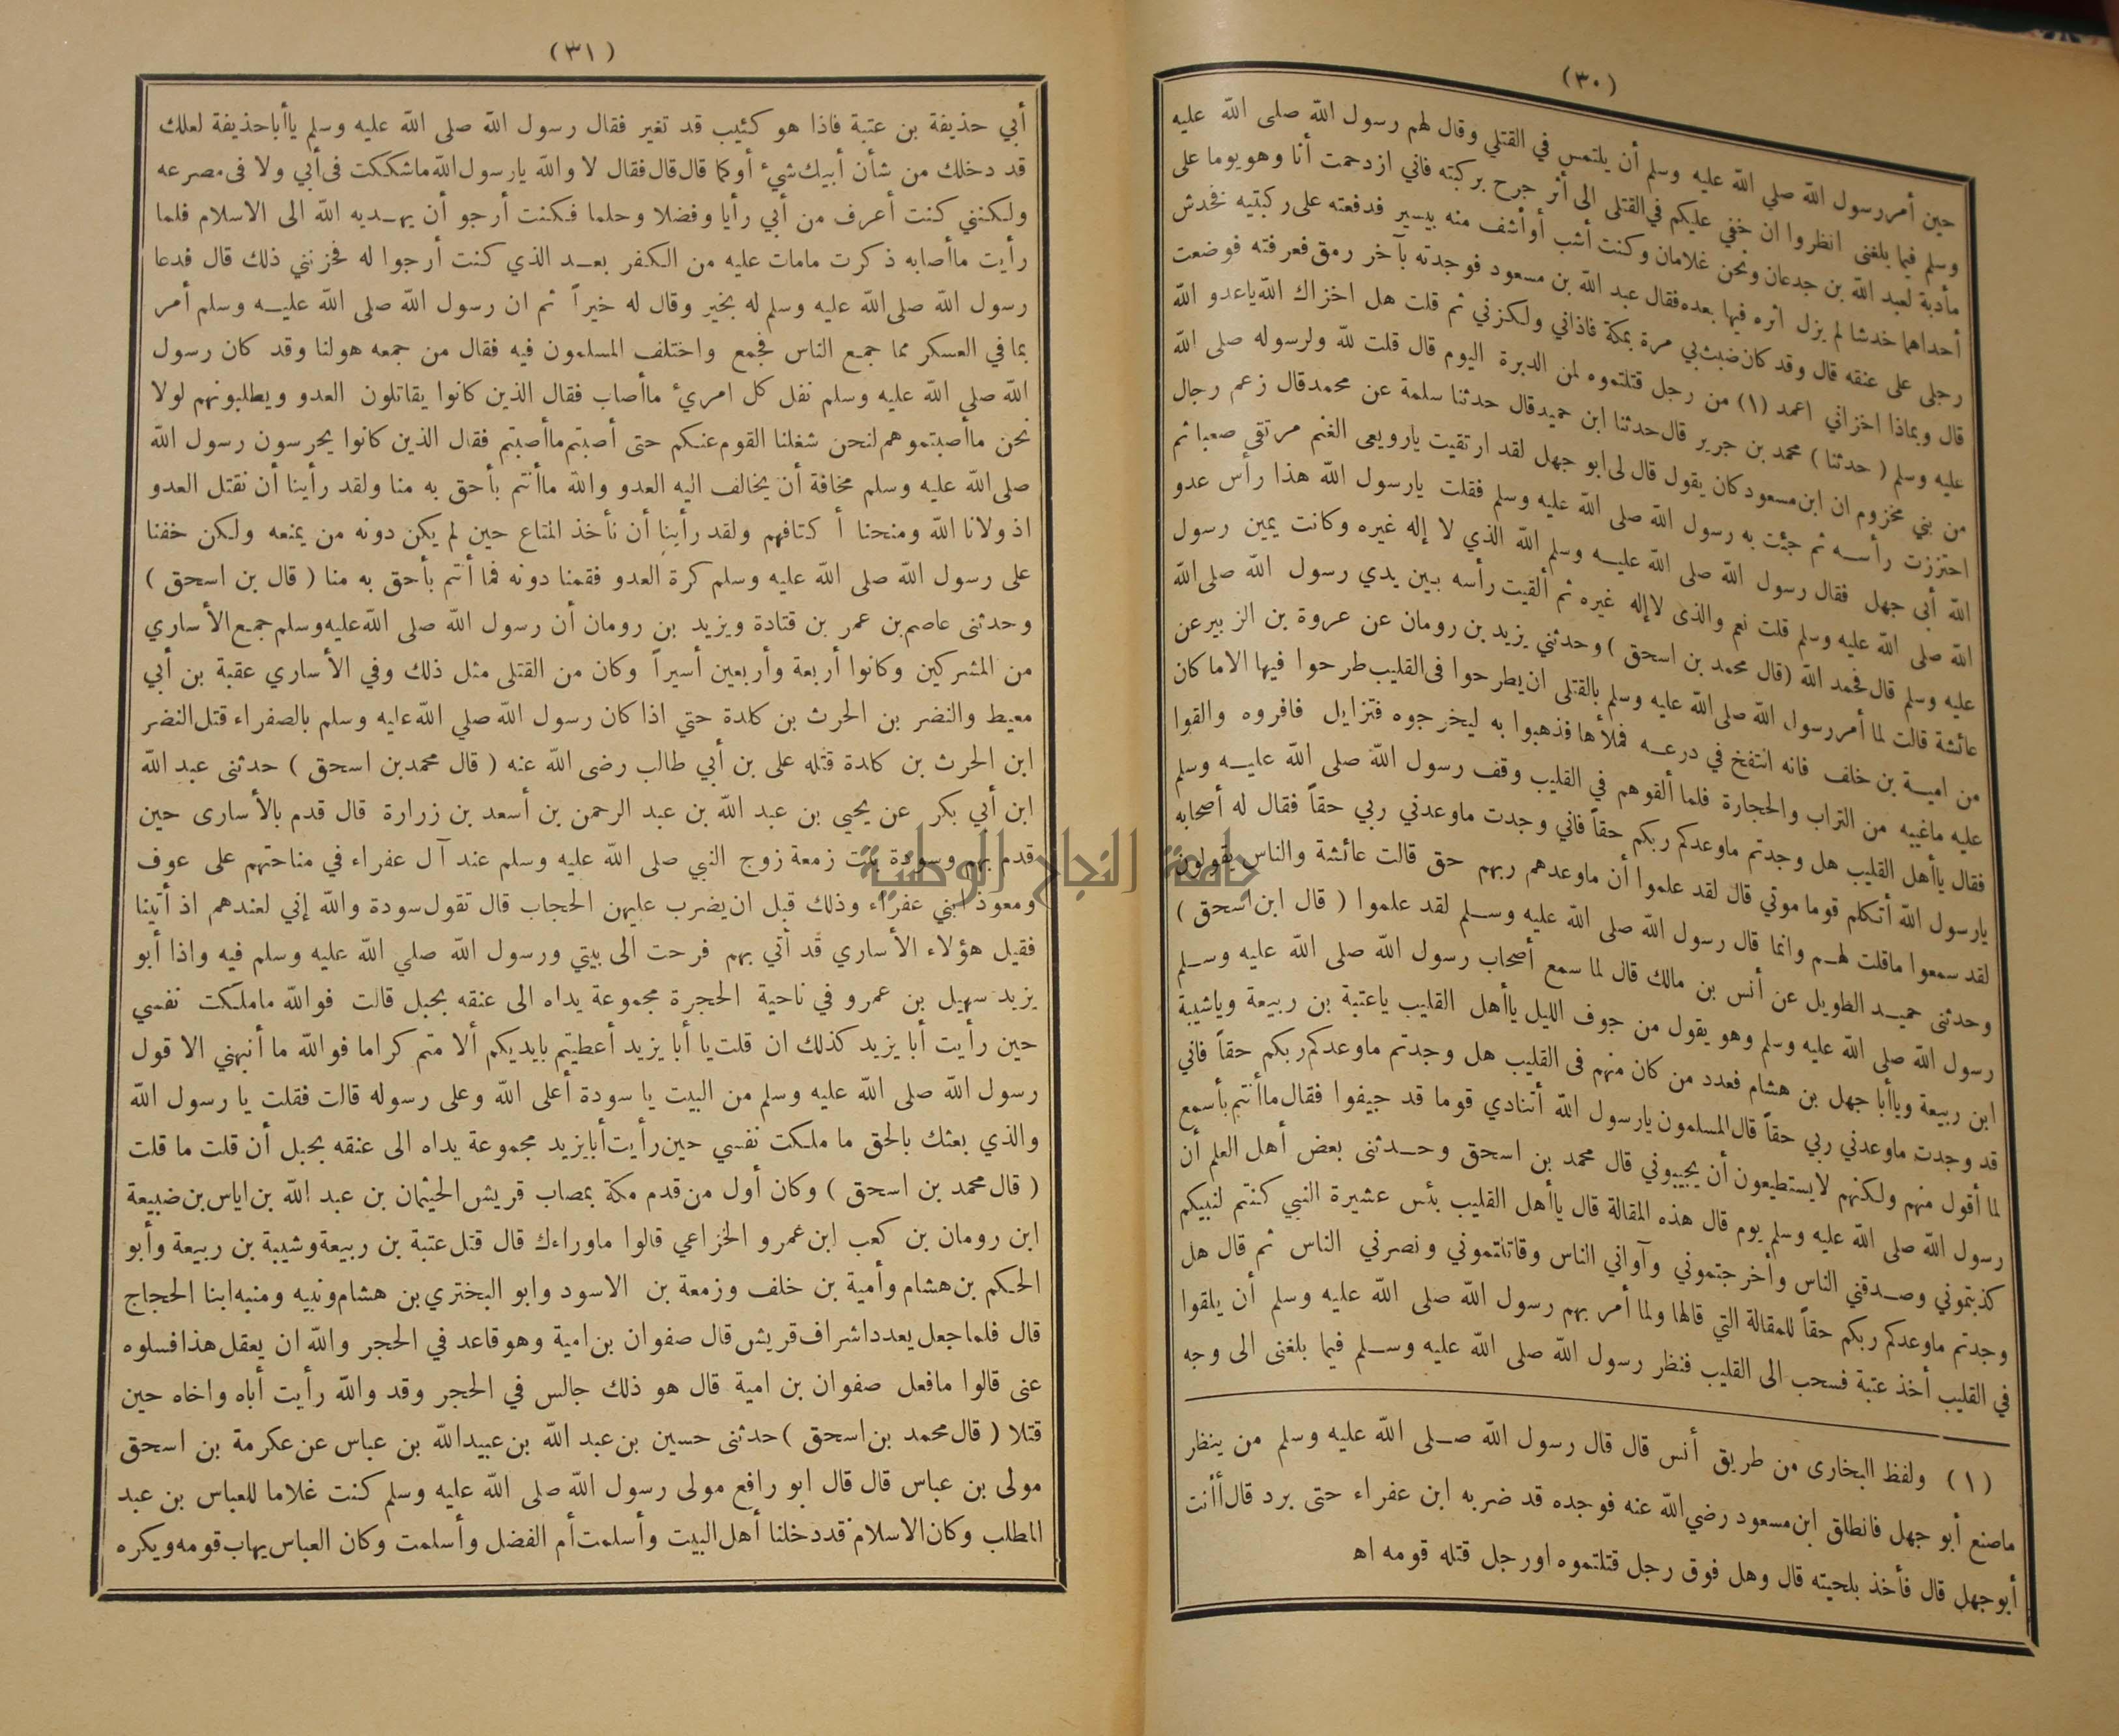 (٣٠)
حين أمر رسول الله صلي الله عليه وسلم أن يلتمس في القتلي وقال لهم رسول الله صلى الله عليه
وسلم فيما بلغنى انظروا ان خفي عليكم في القتلى الى أثر جرح بركبته فاني ازدحمت أنا وهو يوما على
مأدبة لعبد الله بن جدعان ونحن غلامان وكنت أشب أو أشف منه بيسير فدفعته على ركبتيه فخدش
أحداهما خدشا لم يزل اثره فيها بعده فقال عبد الله بن مسعود فوجدته بآخر رمق فعرفته فوضعت
رجلى على عنقه قال وقد كان ضبث بي مرة بمكة فاذاني ولكزني ثم قلت هل اخزاك الله ياعدو الله
قال وبماذا اخزاني اعمد (١) من رجل قتلتموه لمن الدبرة اليوم قال قلت لله ولرسوله صلى الله
عليه وسلم ( حدثنا ) محمد بن جرير قال حدثنا ابن حميد قال حدثنا سلمة عن محمد قال زعم رجال
من بني مخزوم ان ابن مسعود كان يقول قال لى ابو جهل لقد ارتقيت يارويعى الغنم مرتقى صعبا ثم
احتززت رأسه ثم جئت به رسول الله صلى الله عليه وسلم فقلت يارسول الله هذا رأس عدو
الله أبى جهل فقال رسول الله صلى الله عليه وسلم الله الذي لا إله غيره وكانت يمين رسول
الله صلى الله عليه وسلم قلت نعم والذى لاإله غيره ثم ألقيت رأسه بين يدي رسول الله صلى الله
عليه وسلم قال فحمد الله (قال محمد بن اسحق ) وحدثني يزيد بن رومان عن عروة بن الزبير عن
عائشة قالت لما أمر رسول الله صلى الله عليه وسلم بالقتلى ان يطرحوا فى القليب طرحوا فيها الاما كان
من امية بن خلف فانه انتفخ في درعه فملأها فذهبوا به ليخرجوه فتزايل فافروه والقوا
عليه ماغيبه من التراب والحجارة فلما ألقوهم في القليب وقف رسول الله صلى الله عليه وسلم
فقال ياأهل القليب هل وجدتم ماوعدكم ربكم حقاً فاني وجدت ماوعدني ربي حقاً فقال له أصحابه
يارسول الله أتكلم قوما موتي قال لقد علموا أن ماوعدهم ربهم حق قالت عائشة والناس يقولون
لقد سمعوا ماقلت لهم وانما قال رسول الله صلى الله عليه وسلم لقد علموا ( قال ابن اسحق )
وحدثنى حميد الطويل عن أنس بن مالك قال لما سمع أصحاب رسول الله صلى الله عليه وسلم
رسول الله صلى الله عليه وسلم وهو يقول من جوف الليل ياأهل القليب ياعتبة بن ربيعة وياشيبة
ابن ربيعة وياأبا جهل بن هشام فعدد من كان منهم فى القليب هل وجدتم ماوعدكم ربكم حقاً فاني
قد وجدت ماوعدني ربي حقاً قال المسلمون يارسول الله أتنادي قوما قد جيفوا فقال ماأنتم بأسمع
لما أقول منهم ولكنهم لايستطيعون أن يجيبوني قال محمد بن اسحق وحدثنى بعض أهل العلم أن
رسول الله صلى الله عليه وسلم يوم قال هذه المقالة قال ياأهل القليب بئس عشيرة النبي كنتم لنبيكم
كذبتموني وصدقني الناس وأخرجتموني وآواني الناس وقاتلتموني ونصرني الناس ثم قال هل
وجدتم ماوعدكم ربكم حقاً للمقالة التي قالها ولما أمر بهم رسول الله صلى الله عليه وسلم أن يلقوا
في القليب أخذ عتبة فسحب الى القليب فنظر رسول الله صلى الله عليه وسلم فيما بلغنى الى وجه
(١) ولفظ البخارى من طريق أنس قال قال رسول الله صلى الله عليه وسلم من ينظر
ماصنع أبو جهل فانطلق ابن مسعود رضي الله عنه فوجده قد ضربه ابن عفراء حتى برد قال أأنت
أبوجهل قال فأخذ بلحيته قال وهل فوق رجل قتلتموه اورجل قتله قومه اه
(٣١)
أبي حذيفة بن عتبة فاذا هو كئيب قد تغير فقال رسول الله صلى الله عليه وسلم ياأباحذيفة لعلك
قد دخلك من شأن أبيك شيء أوكما قال قال فقال لا والله يارسول الله ماشككت فى أبي ولا فى مصرعه
ولكنني كنت أعرف من أبي رأيا وفضلا وحلما فكنت أرجو أن يهديه الله الى الاسلام فلما
رأيت ماأصابه ذكرت مامات عليه من الكفر بعد الذي كنت أرجوا له فحزنني ذلك قال فدعا
رسول الله صلى الله عليه وسلم له بخير وقال له خيراً ثم ان رسول الله صلى الله عليه وسلم أمر
بما في العسكر مما جمع الناس فجمع واختلف المسلمون فيه فقال من جمعه هولنا وقد كان رسول
الله صلي الله عليه وسلم نفل كل امريء ماأصاب فقال الذين كانوا يقاتلون العدو ويطلبونهم لولا
نحن ماأصبتموهم لنحن شغلنا القوم عنكم حتى أصبتم ماأصبتم فقال الذين كانوا يحرسون رسول الله
صلى الله عليه وسلم مخافة أن يخالف اليه العدو والله ماأنتم بأحق به منا ولقد رأينا أن نقتل العدو
اذ ولانا الله ومنحنا أ كتافهم ولقد رأينا أن نأخذ المتاع حين لم يكن دونه من يمنعه ولكن خفنا
على رسول الله صلى الله عليه وسلم كرة العدو فقمنا دونه فما أنتم بأحق به منا ( قال بن اسحق )
وحدثنى عاصم بن عمر بن قتادة ويزيد بن رومان أن رسول الله صلى الله عليه وسلم جمع الأساري
من المشركين وكانوا أربعة وأربعين أسيراً وكان من القتلى مثل ذلك وفي الأساري عقبة بن أبي
معيط والنضر بن الحرث بن كلدة حتي اذا كان رسول الله صلي الله عليه وسلم بالصفراء قتل النضر
ابن الحرث بن كلدة قتله على بن أبي طالب رضى الله عنه ( قال محمدبن اسحق ) حدثنى عبد الله
ابن أبي بكر عن يحيى بن عبد الله بن عبد الرحمن بن أسعد بن زرارة قال قدم بالأسارى حين
قدم بهم وسودة بنت زمعة زوج النبي صلى الله عليه وسلم عند آل عفراء في مناحتهم على عوف
ومعوذ ابني عفراء وذلك قبل ان يضرب عليهن الحجاب قال تقول سودة والله إني لعندهم اذ أتينا
فقيل هؤلاء الأساري قد أتي بهم فرحت الى بيتي ورسول الله صلي الله عليه وسلم فيه واذا أبو
يزيد سهيل بن عمرو في ناحية الحجرة مجموعة يداه الى عنقه بحبل قالت فوالله ماملكت نفسي
حين رأيت أبا يزيد كذلك ان قلت يا أبا يزيد أعطيتم بايديكم ألا متم كراما فوالله ما أنبهني الا قول
رسول الله صلى الله عليه وسلم من البيت يا سودة أعلى الله وعلى رسوله قالت فقلت يا رسول الله
والذي بعثك بالحق ما ملكت نفسي حين رأيت أبايزيد مجموعة يداه الى عنقه بحبل أن قلت ما قلت
( قال محمد بن اسحق ) وكان أول من قدم مكة بمصاب قريش الحيثمان بن عبد الله بن اياس بن ضبيعة
ابن رومان بن كعب ابن عمرو الخزاعي قالوا ماوراءك قال قتل عتبة بن ربيعة وشيبة بن ربيعة وأبو
الحكم بن هشام وأمية بن خلف وزمعة بن الاسود وابو البختري بن هشام ونبيه ومنبه ابنا الحجاج
قال فلما جعل يعدد اشراف قريش قال صفوان بن امية وهو قاعد في الحجر والله ان يعقل هذا فسلوه
عنى قالوا مافعل صفوان بن امية قال هو ذلك جالس في الحجر وقد والله رأيت أباه واخاه حين
قتلا ( قال محمد بن اسحق ) حدثنى حسين بن عبد الله بن عبيدالله بن عباس عن عكرمة بن اسحق
مولى بن عباس قال قال ابو رافع مولى رسول الله صلى الله عليه وسلم كنت غلاما للعباس بن عبد
المطلب وكان الاسلام قد دخلنا أهل البيت وأسلمت أم الفضل وأسلمت وكان العباس يهاب قومه ويكره
جامعة النجاح الوطنية